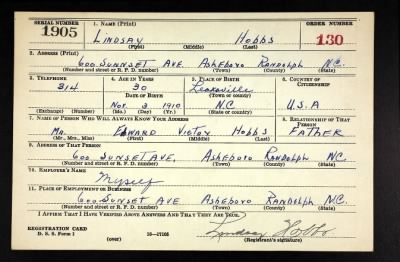 SERIAL NUMBER 1. NAME (Print) ORDER NUMBER
1905 LINDSAY HOBBS 130
(First) (Middle) (Last)
2. ADDRESS (Print)
600 SUNNSET AVE. ASHEBORO RANDOLPH N.C.
(Number and street or R. F. D. number) (Town) (County) (State)
3. TELEPHONE 4. AGE IN YEARS 5. PLACE OF BIRTH 6. COUNTRY OF CITIZENSHIP
314 30 Leaksville
DATE OF BIRTH (Town or county)
Nov 3 1910 N.C. U.S.A
(Exchange) (Number) (Mo.) (Day) (Yr.) (State or country)
7. NAME OF PERSON WHO WILL ALWAYS KNOW YOUR ADDRESS 8. RELATIONSHIP OF THAT PERSON
MR. EDWARD VICTOY HOBBS FATHER
(Mr., Mrs., Miss) (First) (Middle) (Last)
9. ADDRESS OF THAT PERSON
600 SUNSET AVE, ASHEBORO RANDOLPH N.C.
(Number and street or R. F. D. number) (Town) (County) (State)
10. EMPLOYER'S NAME
Myself
11. PLACE OF EMPLOYMENT OR BUSINESS
600 SUNSET AVE ASHEBORO RANDOLPH N.C.
(Number and street or R. F. D. number) (Town) (County) (State)
I AFFIRM THAT I HAVE VERIFIED ABOVE ANSWERS AND THAT THEY ARE TRUE.
REGISTRATION CARD
D. S. S. Form 1 (over) 16—17105 Lindsay Hobbs
(Registrant's signature)